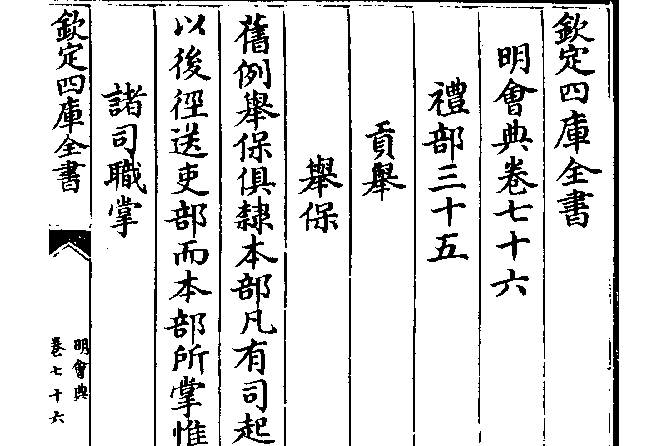 欽定四庫全書
明會典卷七十六
禮部三十五
貢舉
舉保
舊例舉保俱隸本部凡有司起
以後徑送吏部而本部所掌惟
諸司職掌
欽定四庫全書
明會典
卷七十六